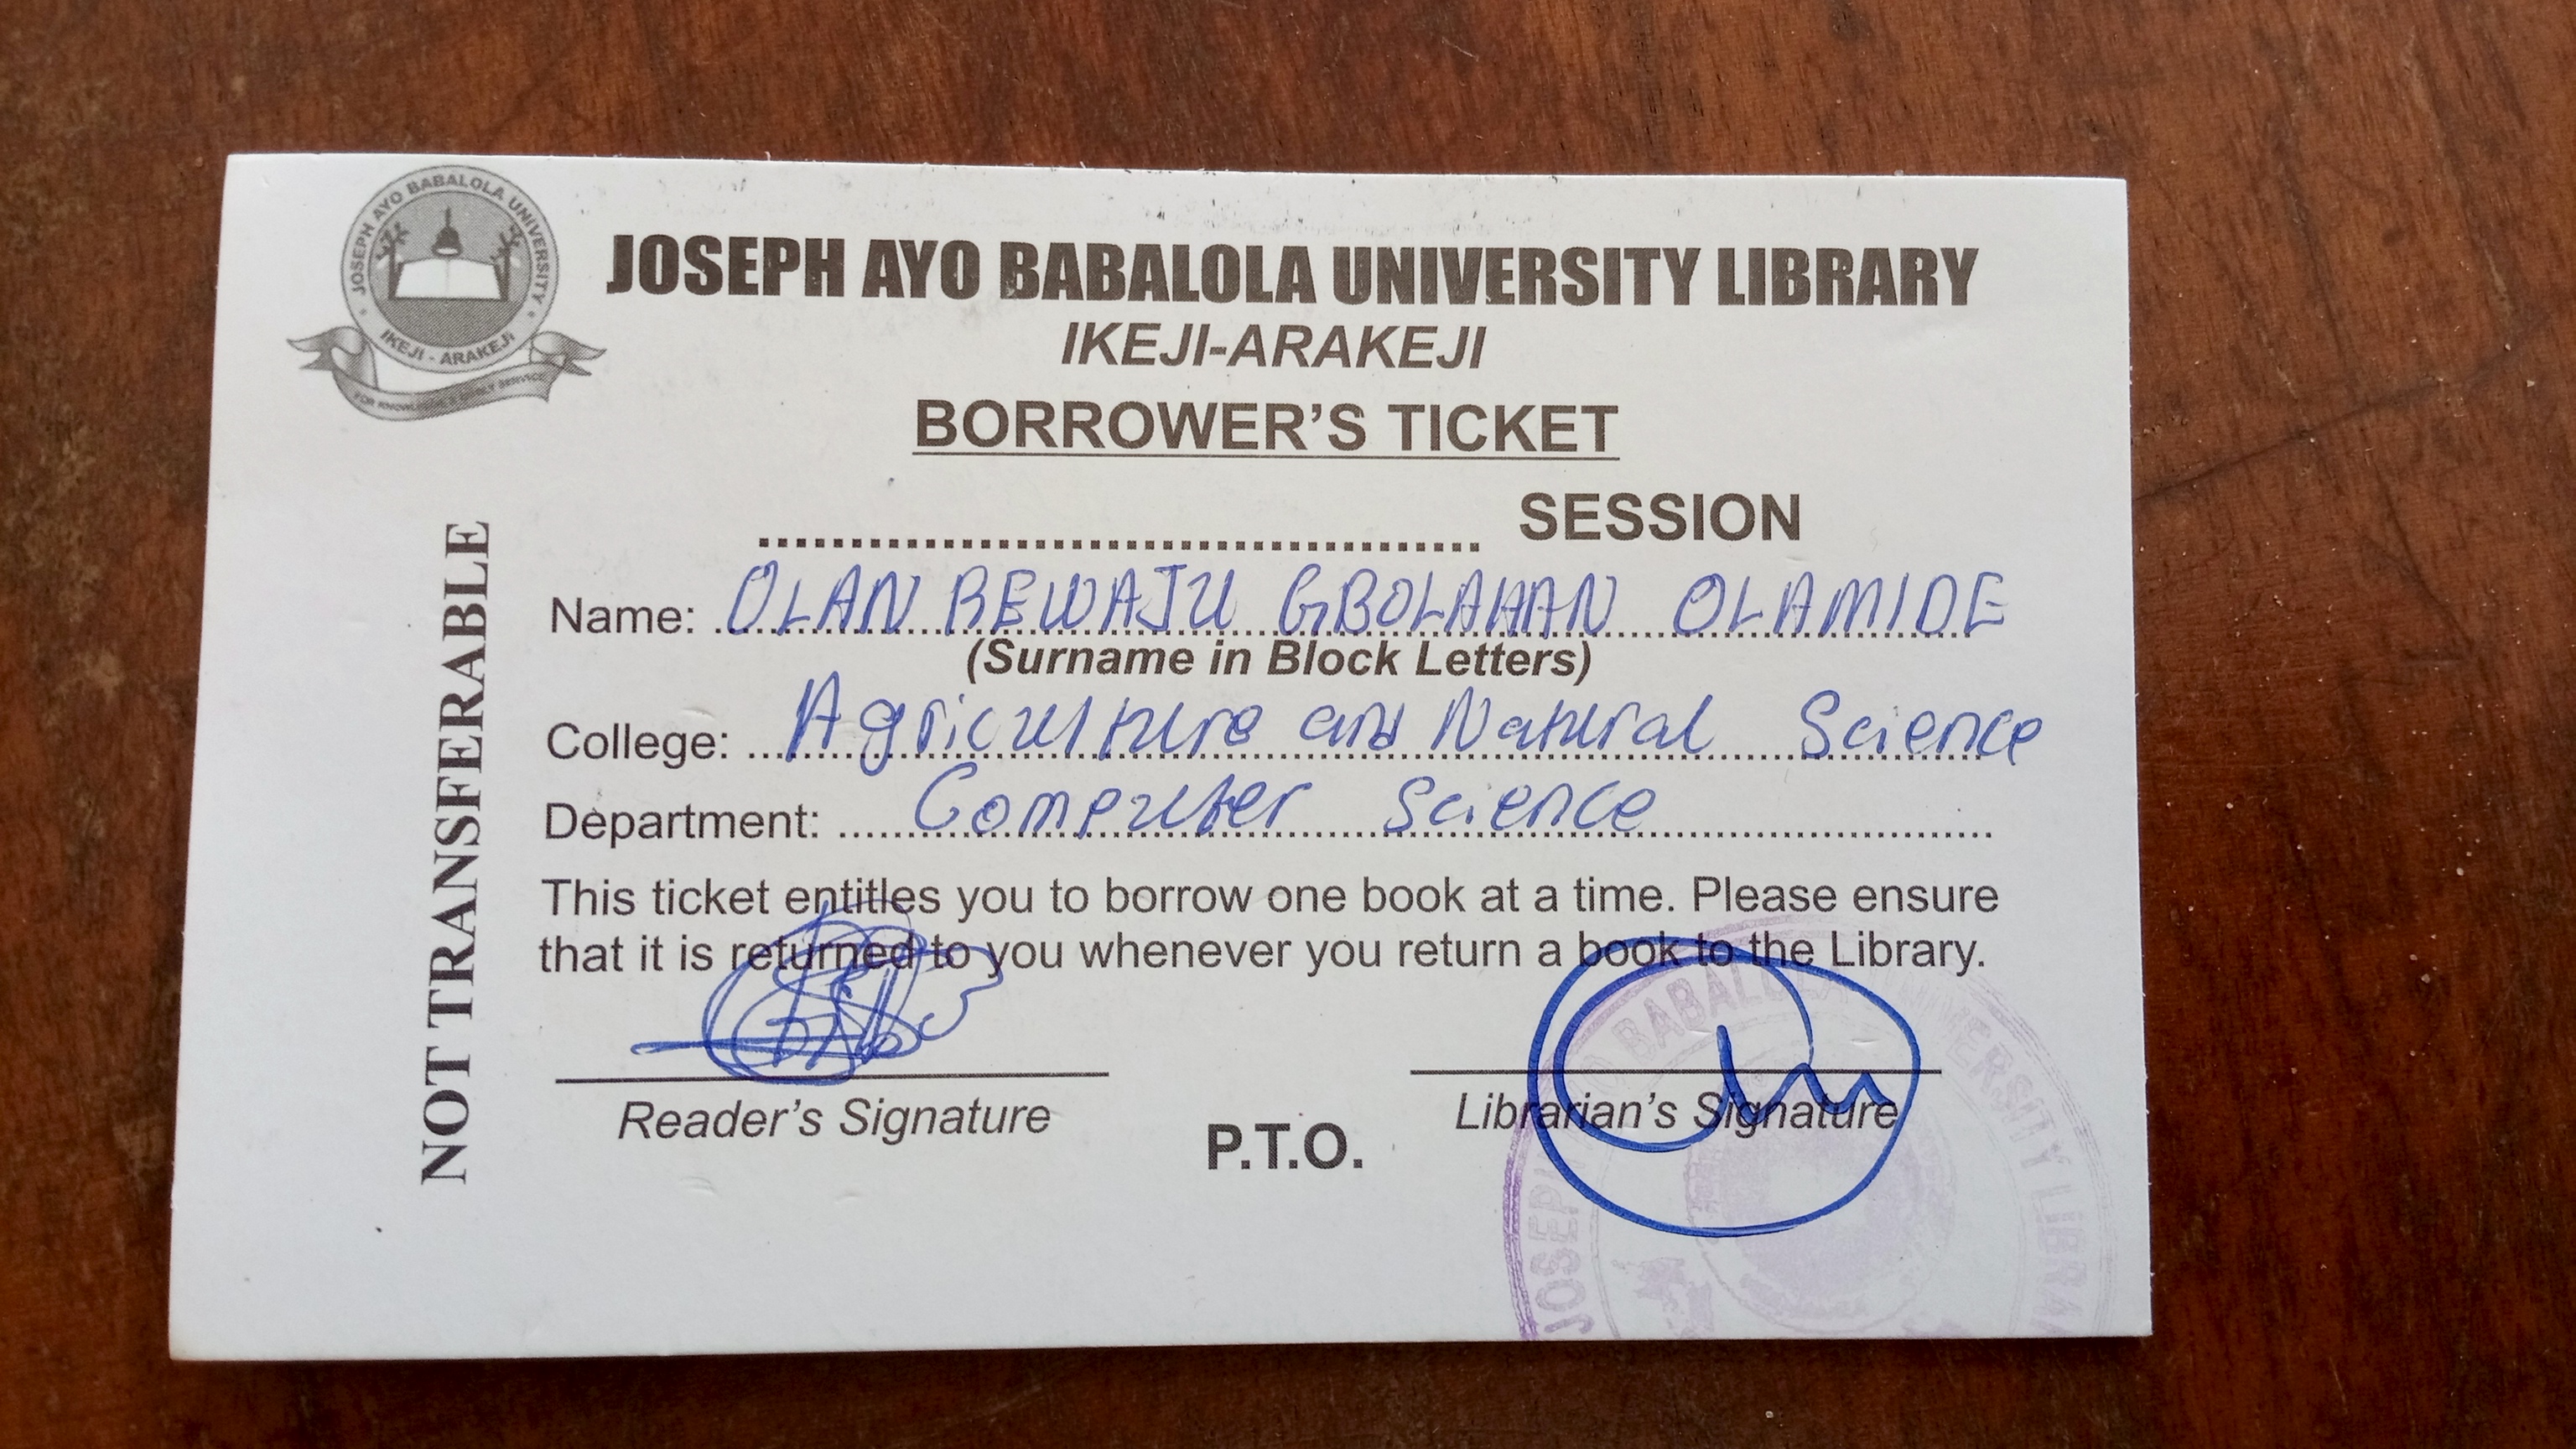 JOSEPH AYO BABALOLA UNIVERSITY
IKEJI - ARAKEJI
FOR KNOWLEDGE & GODLY SERVICE
JOSEPH AYO BABALOLA UNIVERSITY LIBRARY
IKEJI-ARAKEJI
BORROWER'S TICKET
........................................ SESSION
NOT TRANSFERABLE
Name: OLAN REWAJU GBOLAHAN OLAMIDE
(Surname in Block Letters)
College: Agriculture and Natural Science
Department: Computer Science
This ticket entitles you to borrow one book at a time. Please ensure
that it is returned to you whenever you return a book to the Library.
Reader's Signature
Librarian's Signature
P.T.O.
JOSEPH AYO BABALOLA UNIVERSITY LIBRARY